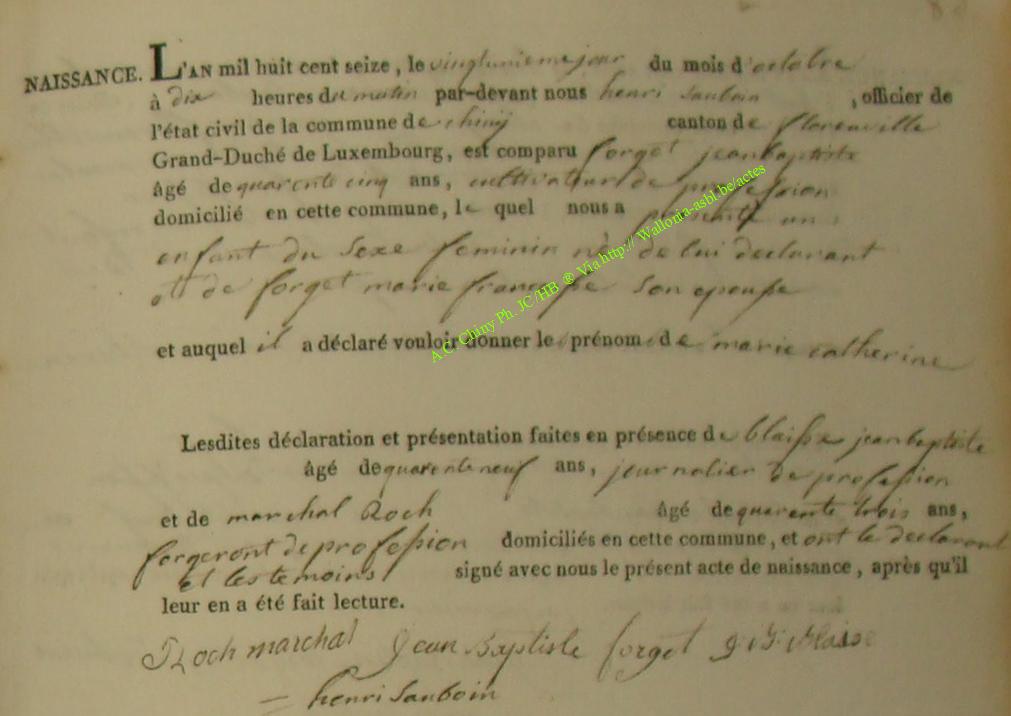 NAISSANCE. L'AN mil huit cent seize, le vingtunieme jour du mois d'octobre
à dix heures du matin par-devant nous henri Sauboin, officier de
l'état civil de la commune de chiny canton de florenville
Grand-Duché de Luxembourg, est comparu forget jean baptiste
âgé de quarente cinq ans, cultivateur de profession
domicilié en cette commune, le quel nous a presenté un
enfant du Sexe feminin né de lui declarant
et de forget marie françoise Son epouse
et auquel il a déclaré vouloir donner le prénom de marie catherine
Lesdites déclaration et présentation faites en présence de blaisse jean baptiste
âgé de quarente neuf ans, journalier de profession
et de marchal Roch âgé de quarente trois ans,
forgeront de profession domiciliés en cette commune, et ont le declarant
et les temoins signé avec nous le présent acte de naissance, après qu'il
leur en a été fait lecture.
Roch marchal Jean Baptiste forget J B Blaise
henri Sauboin
A.C. Chiny Ph. JC/HB ® Via http:// Wallonia-asbl.be/actes